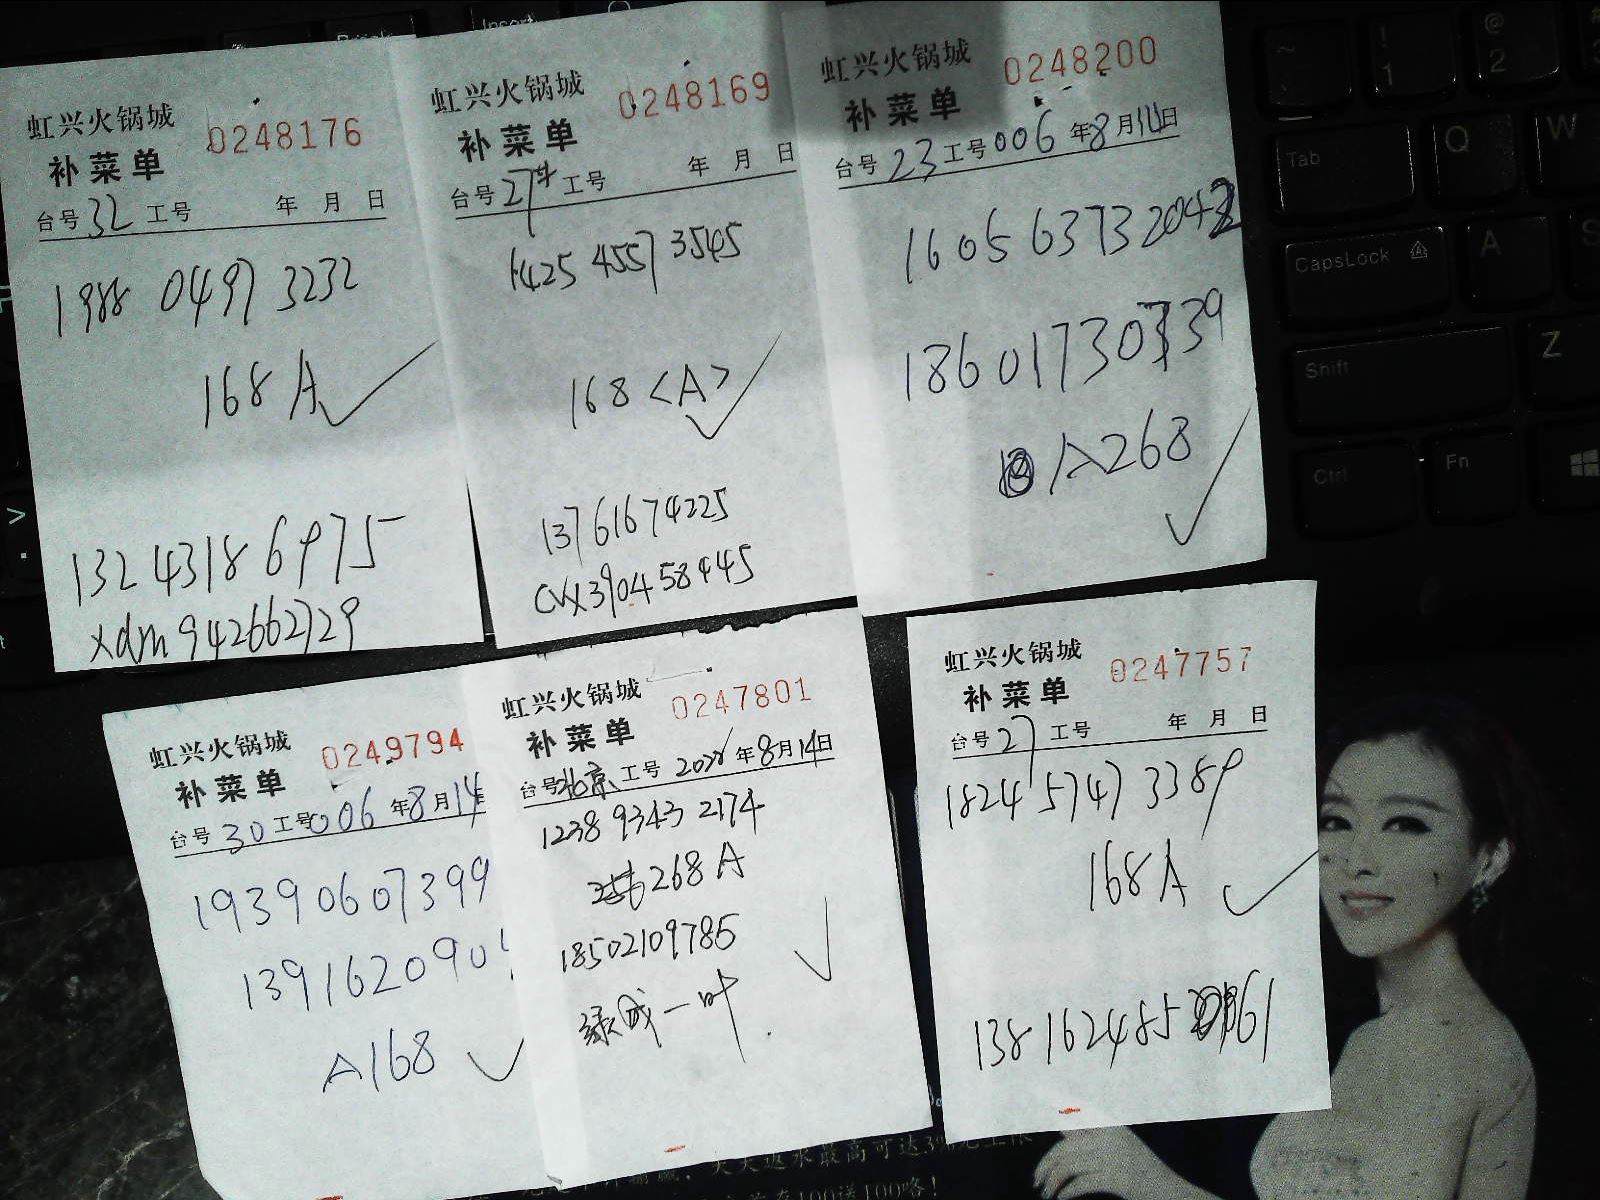 虹兴火锅城 0248176
补菜单
台号 32 工号 年 月 日
1988 0497 3232
168 A
132 4318 6975
xdm942662729
虹兴火锅城 0248169
补菜单
台号 27# 工号 年 月 日
1425 4557 3545
168 <A>
13761674225
cvx390458445
虹兴火锅城 0248200
补菜单
台号 23 工号 006 年 8 月 14 日
160563732042
18601730339
A268
虹兴火锅城 0249794
补菜单
台号 30 工号 006 年 8 月 14 日
19390607399
139162090
A168
虹兴火锅城 0247801
补菜单
台号 北京 工号 年 8 月 14 日
1238 9343 2174
268 A
18502109785
一叶
虹兴火锅城 0247757
补菜单
台号 27 工号 年 月 日
1824 5747 3389
168 A
138 162485 61
Insert
~
!
1
@
2
Tab
Q
W
CapsLock
A
S
Shift
Z
Ctrl
Fn
天天返水最高可达3%无上限
100送100咯！